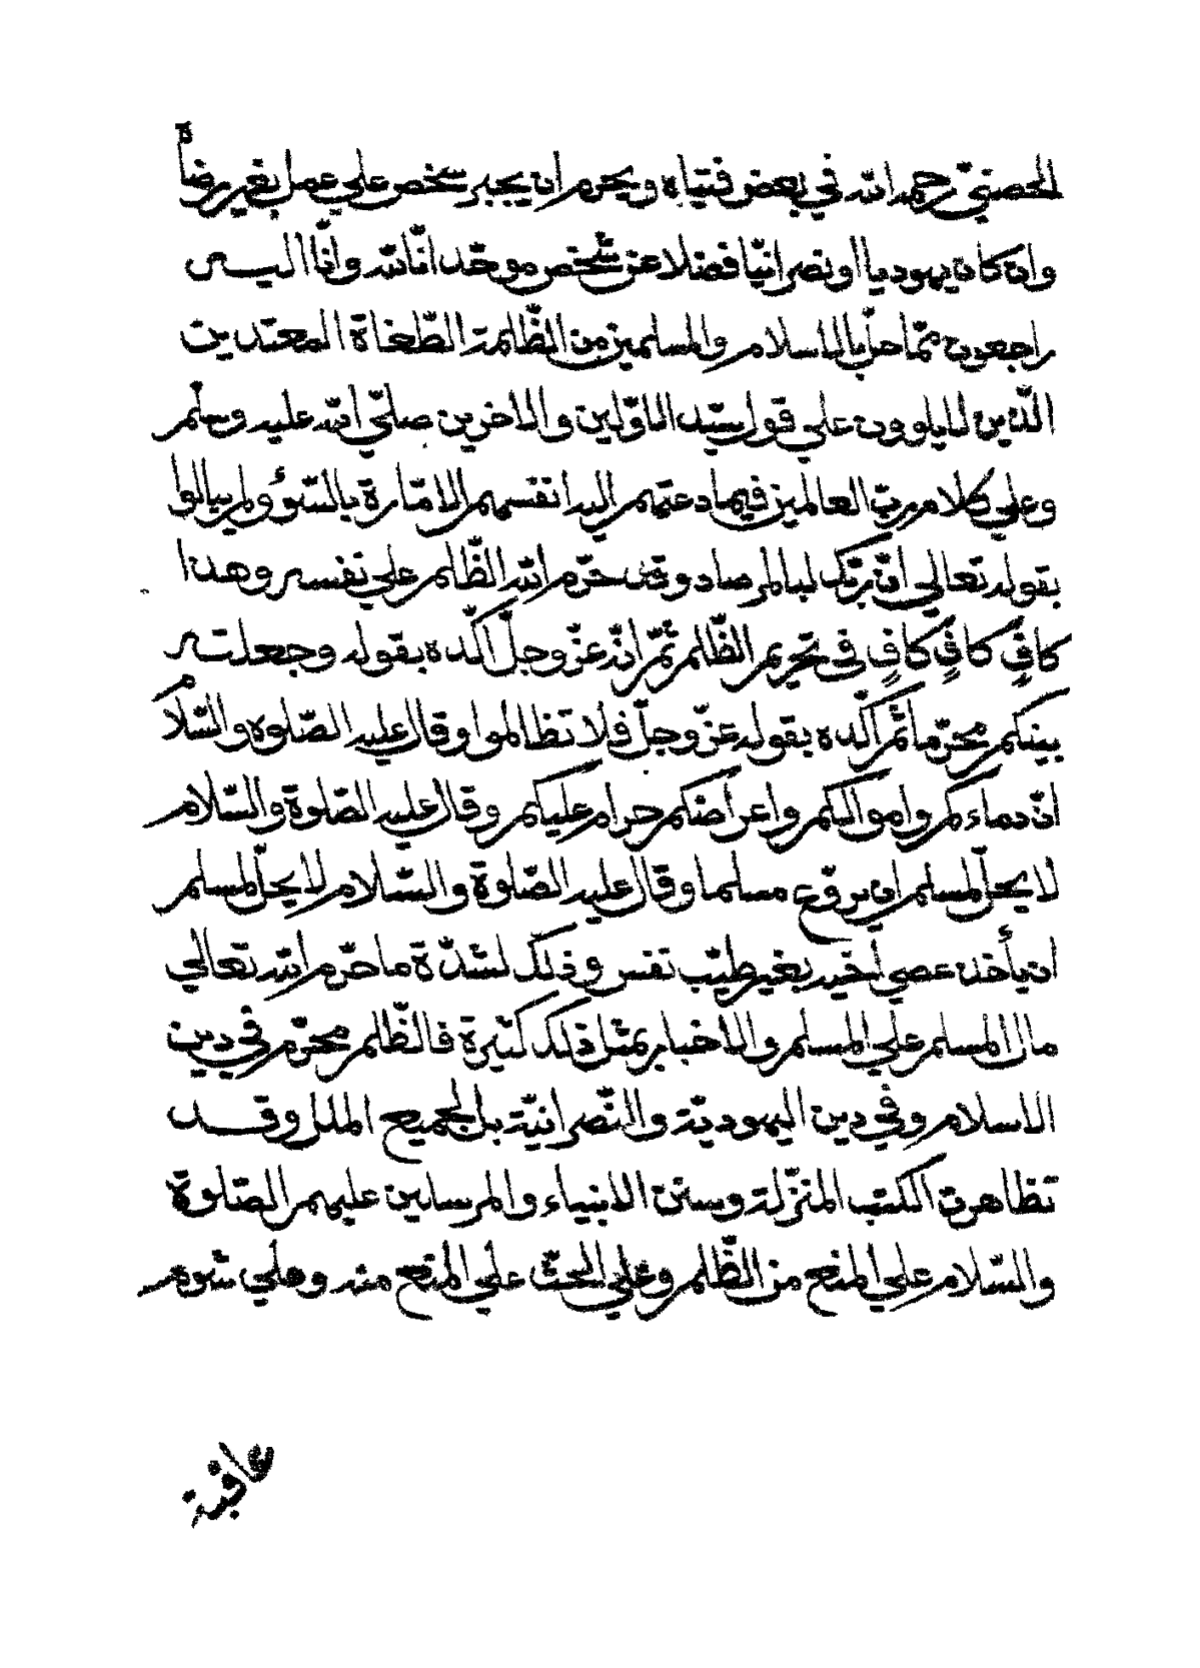 الحصنيّ رحمه الله في بعض فتياه ويحرم ان يجبر شخص علي عمل بغير رضاة
وان كان يهوديا او نصرانيّا فضلا عن شخص موحّد انّا لله وانّا اليــه
راجعون ممّا حلّ بالاسلام والمسلمين من الظّلمة الطّغاة المعتدين
الّذين لا يلوون علي قول سيّد الاوّلين والاخرين صلّي الله عليه وسلّم
وعلي كلام ربّ العالمين فيما دعتهم اليه انفسهم الامّارة بالسّوٴ ولم يبالوا
بقوله تعالي انّ ربّك لبالمرصاد وقد حرّم الله الظّلم علي نفسه وهذا
كافٍ كافٍ كافٍ في تحريم الظّلم ثمّ انّه عزّ وجلّ اكّده بقوله وجعلته
بينكم محرّما ثمّ اكّده بقوله عزّ وجلّ فلا تظالموا وقال عليه الصّلوة والسّلام
انّ دماءكم واموالكم واعراضكم حرام عليكم وقال عليه الصّلوة والسّلام
لا يحلّ لمسلم ان يروّع مسلما وقال عليه الصّلوة والسّلام لا يحلّ لمسلم
ان يأخذ عصي أخيه بغير طيّب نفس وذلك لشدّة ما حرّم الله تعالي
مال المسلم علي المسلم والاخبار بمثل ذلك كثيرة فالظّلم محرّم في دين
الاسلام وفي دين اليهوديّة والنّصرانيّة بل لجميع الملل وقــد
تظاهرت الكتب المنزّلة وسنن الانبياء والمرسلين عليهم الصّلوة
والسّلام علي المنع من الظّلم وعلي الحثّ علي المنع منه وعلي شوم
عاقبة